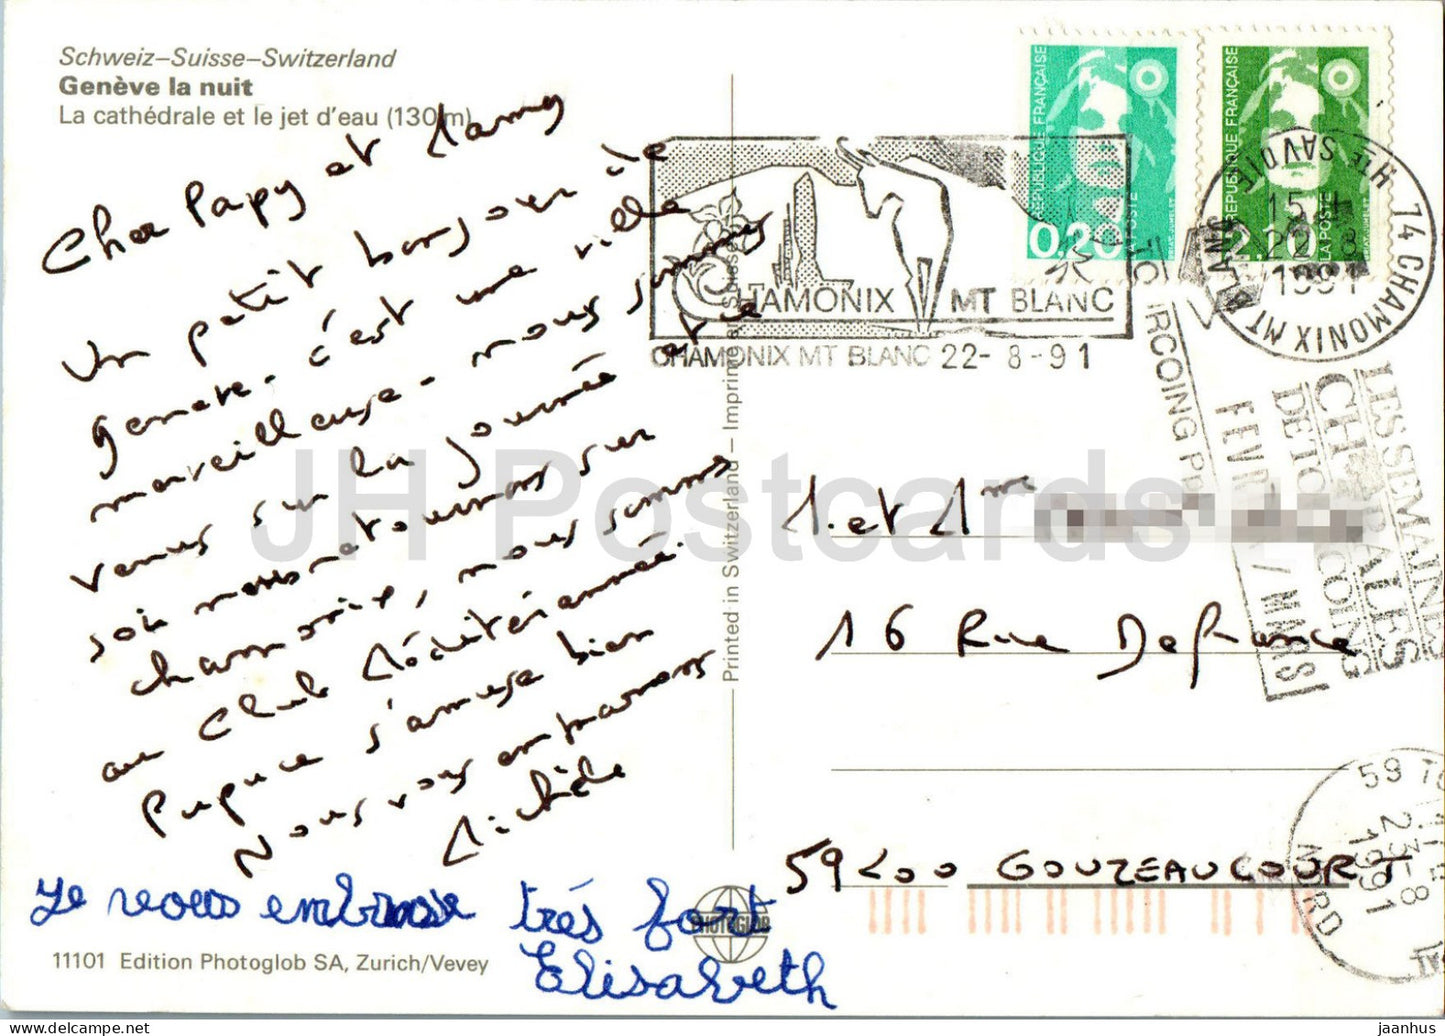 Schweiz–Suisse–Switzerland
Genève la nuit
La cathédrale et le jet d'eau (130 m)
Cher Papy et Mamy
Un petit bonjour de
Genève - c'est une ville
merveilleuse - nous sommes
venus sur la journée et ce
soir nous retournons sur
chamonix, nous sommes
au Club Méditériannée.
Pupuce s'amuse bien
Nous vous embrassons
Michèle
Je vous embrasse très fort
Elisabeth
11101 Edition Photoglob SA, Zurich/Vevey
PHOTOGLOB
Printed in Switzerland – Imprimé en Suisse
REPUBLIQUE FRANÇAISE
0.20
LA POSTE
REPUBLIQUE FRANÇAISE
2.20
LA POSTE
CHAMONIX MT BLANC
CHAMONIX MT BLANC 22-8-91
74 CHAMONIX MT BLANC
HTE SAVOIE
15 H
22-8
1991
LES SEMAINES
DE TOURCOING
FEVRIER / MARS
M. et Mme
16 Rue Defrance
59400 GOUZEAUCOURT
59
23-8
1991
NORD
JH Postcards
jaanhus
delcampe.net